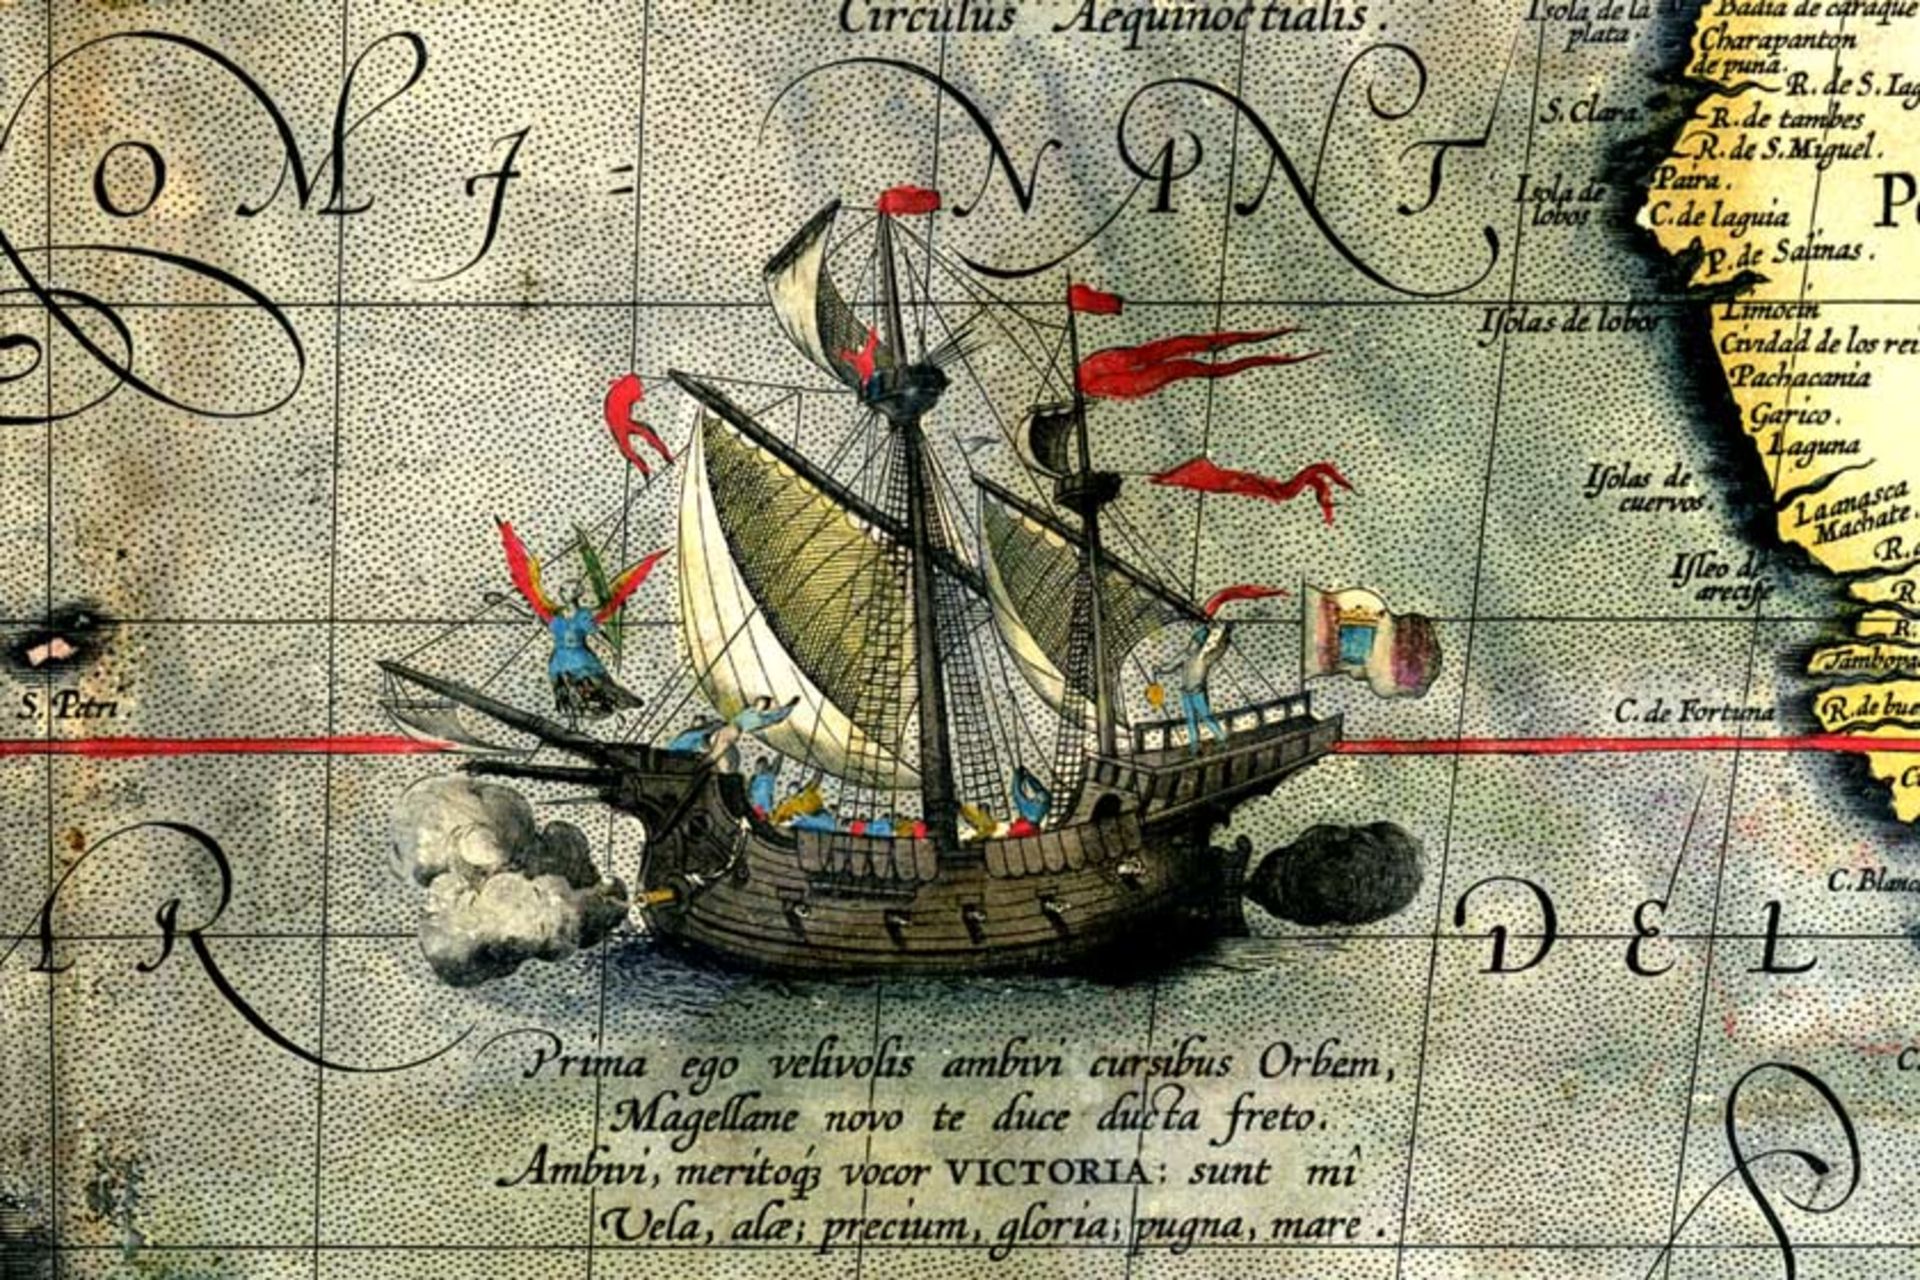 Circulus Aequinoctialis.
Isola de la
plata.
Badia de caraque
Charapanton
de puna.
R. de S. Iag
S. Clara.
R. de tambes
R. de S. Miguel.
OMI=NANT
Isola de
lobos
Paira.
C. de laguia
P. de Salinas.
Isolas de lobos
Limocin
Cividad de los rei
Pachacania
Garico.
Laguna
Isolas de
cuervos.
Laanasca
Machate.
Isleo de
arecife
S. Petri.
C. de Fortuna
R. de bue
C. Blanc
AR
DEL
Prima ego velivolis ambivi cursibus Orbem,
Magellane novo te duce ducta freto.
Ambivi, meritoqȝ vocor VICTORIA: sunt mî
Vela, alæ; precium, gloria; pugna, mare.